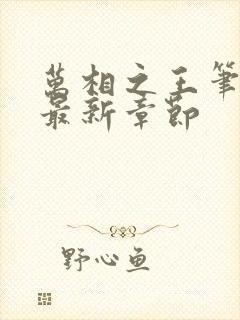 萬相之王筆
最新章節
野心鱼